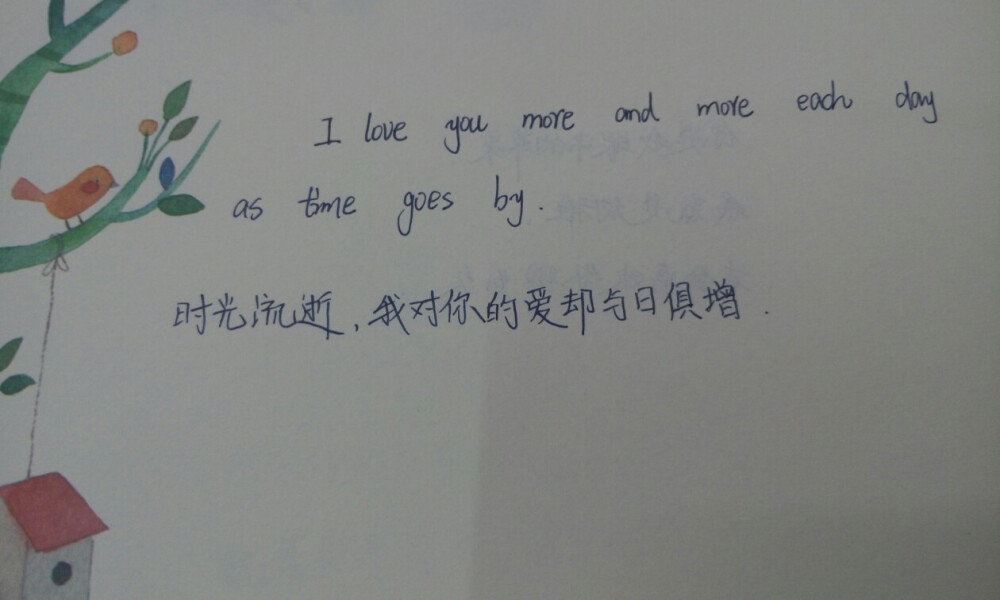 I love you more and more each day
as time goes by.
时光流逝,我对你的爱却与日俱增.